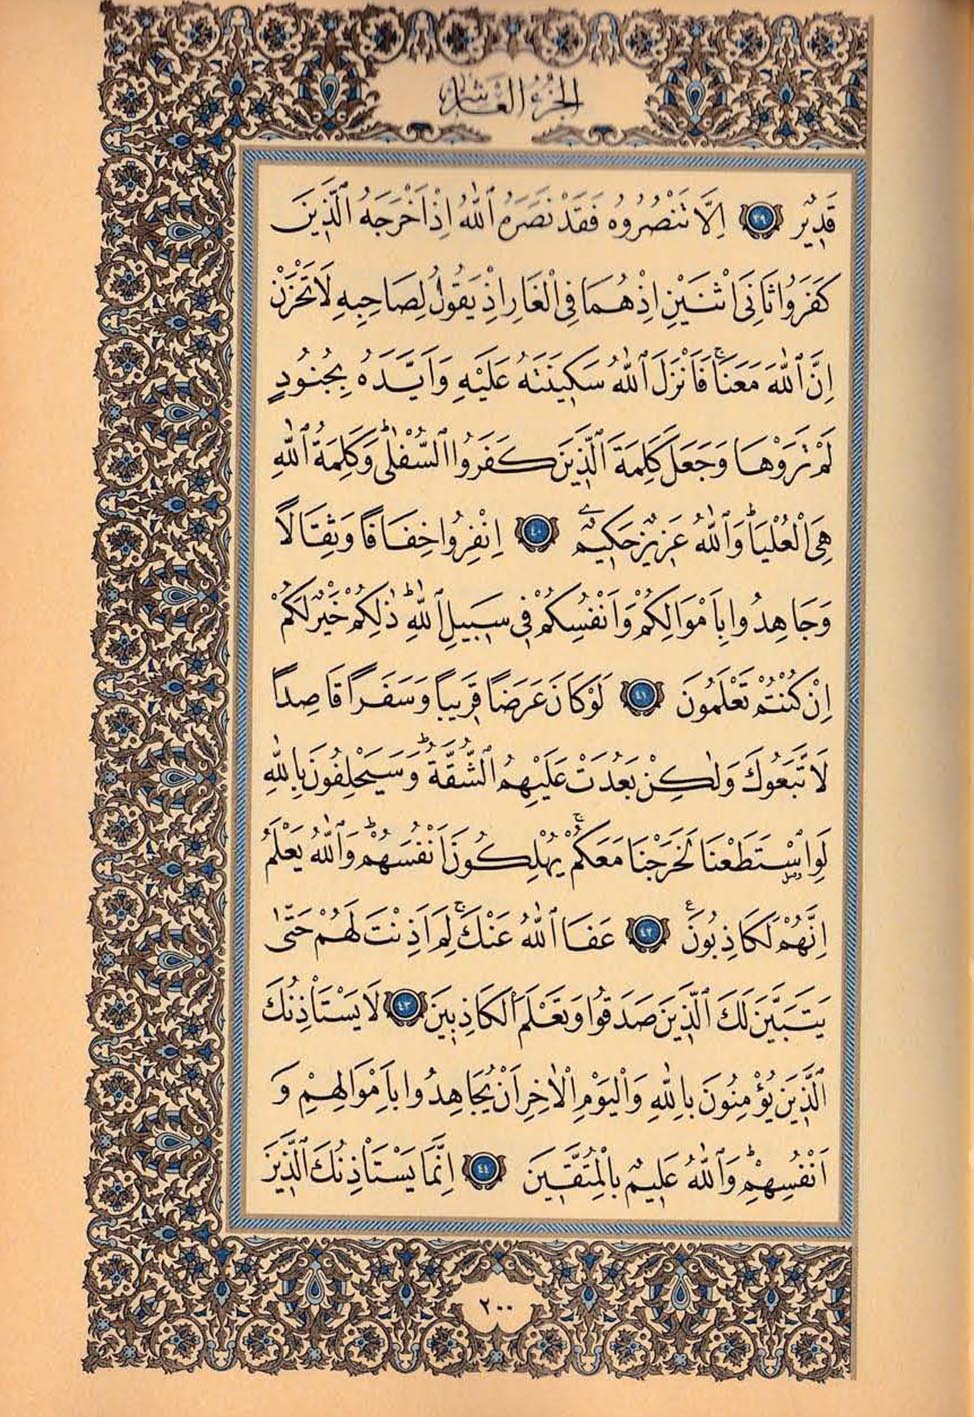 الجزء العاشر
قَدِيرٌ ٣٩ اِلَّا تَنْصُرُوهُ فَقَدْ نَصَرَهُ ٱللّٰهُ اِذْ اَخْرَجَهُ ٱلَّذِينَ
كَفَرُوا ثَانِىَ اثْنَيْنِ اِذْ هُمَا فِى الْغَارِ اِذْ يَقُولُ لِصَاحِبِهِ لَا تَحْزَنْ
اِنَّ ٱللّٰهَ مَعَنَاۚ فَاَنْزَلَ ٱللّٰهُ سَكِينَتَهُ عَلَيْهِ وَاَيَّدَهُ بِجُنُودٍ
لَمْ تَرَوْهَا وَجَعَلَ كَلِمَةَ ٱلَّذِينَ كَفَرُوا ٱلسُّفْلٰىۜ وَكَلِمَةُ ٱللّٰهِ
هِىَ الْعُلْيَاۜ وَٱللّٰهُ عَزِيزٌ حَكِيمٌ ٤٠ اِنْفِرُوا خِفَافًا وَثِقَالًا
وَجَاهِدُوا بِاَمْوَالِكُمْ وَاَنْفُسِكُمْ فِى سَبِيلِ ٱللّٰهِۜ ذٰلِكُمْ خَيْرٌ لَكُمْ
اِنْ كُنْتُمْ تَعْلَمُونَ ٤١ لَوْ كَانَ عَرَضًا قَرِيبًا وَسَفَرًا قَاصِدًا
لَا تَّبَعُوكَ وَلٰكِنْ بَعُدَتْ عَلَيْهِمُ ٱلشُّقَّةُۜ وَسَيَحْلِفُونَ بِاللّٰهِ
لَوِ اسْتَطَعْنَا لَخَرَجْنَا مَعَكُمْۚ يُهْلِكُونَ اَنْفُسَهُمْۜ وَٱللّٰهُ يَعْلَمُ
اِنَّهُمْ لَكَاذِبُونَ ٤٢ عَفَا ٱللّٰهُ عَنْكَۚ لِمَ اَذِنْتَ لَهُمْ حَتّٰى
يَتَبَيَّنَ لَكَ ٱلَّذِينَ صَدَقُوا وَتَعْلَمَ الْكَاذِبِينَ ٤٣ لَا يَسْتَأْذِنُكَ
ٱلَّذِينَ يُؤْمِنُونَ بِاللّٰهِ وَالْيَوْمِ الْاٰخِرِ اَنْ يُجَاهِدُوا بِاَمْوَالِهِمْ وَ
اَنْفُسِهِمْۜ وَٱللّٰهُ عَلِيمٌ بِالْمُتَّقِينَ ٤٤ اِنَّمَا يَسْتَأْذِنُكَ ٱلَّذِينَ
٢٠٠